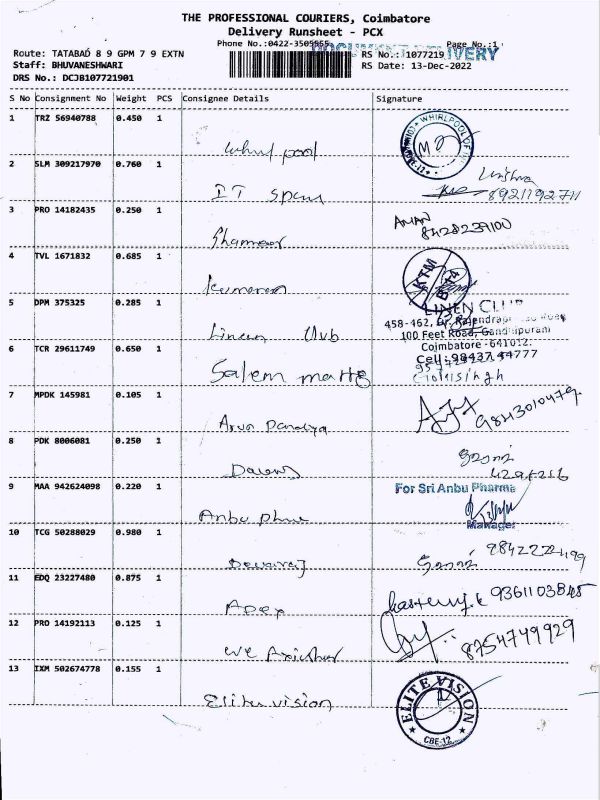 THE PROFESSIONAL COURIERS, Coimbatore
Delivery Runsheet - PCX
Phone No.:0422-3505555 Page No.:1
DOCUMENT DELIVERY
Route: TATABAD 8 9 GPM 7 9 EXTN RS No.: 1077219
Staff: BHUVANESHWARI RS Date: 13-Dec-2022
DRS No.: DCJB107721901
S No Consignment No Weight PCS Consignee Details Signature
1 TRZ 56940788 0.450 1
whirl pool
WHIRLPOOL OF
2 SLM 309217970 0.760 1
IT spens
8921192711
3 PRO 14182435 0.250 1
AMAN
8428239100
4 TVL 1671832 0.685 1
Kumaran
KTM
5 DPM 375325 0.285 1
LINEN CLUB
Linen Club
458-462,
100 Feet Road, Gandhipuram
Coimbatore -641012.
6 TCR 29611749 0.650 1
Cell: 98437 44777
Salem
7 MPDK 145981 0.105 1
Arun Pandiya
9843010479
8 PDK 8006081 0.250 1
9 MAA 942624098 0.220 1
For Sri Anbu Pharma
Anbu
Manager
10 TCG 50288029 0.980 1
Devaraj
11 EDQ 23227480 0.875 1
9361103845
Apex
12 PRO 14192113 0.125 1
8754749929
we
13 IXM 502674778 0.155 1
Elite vision
ELITE VISION
CBE-12